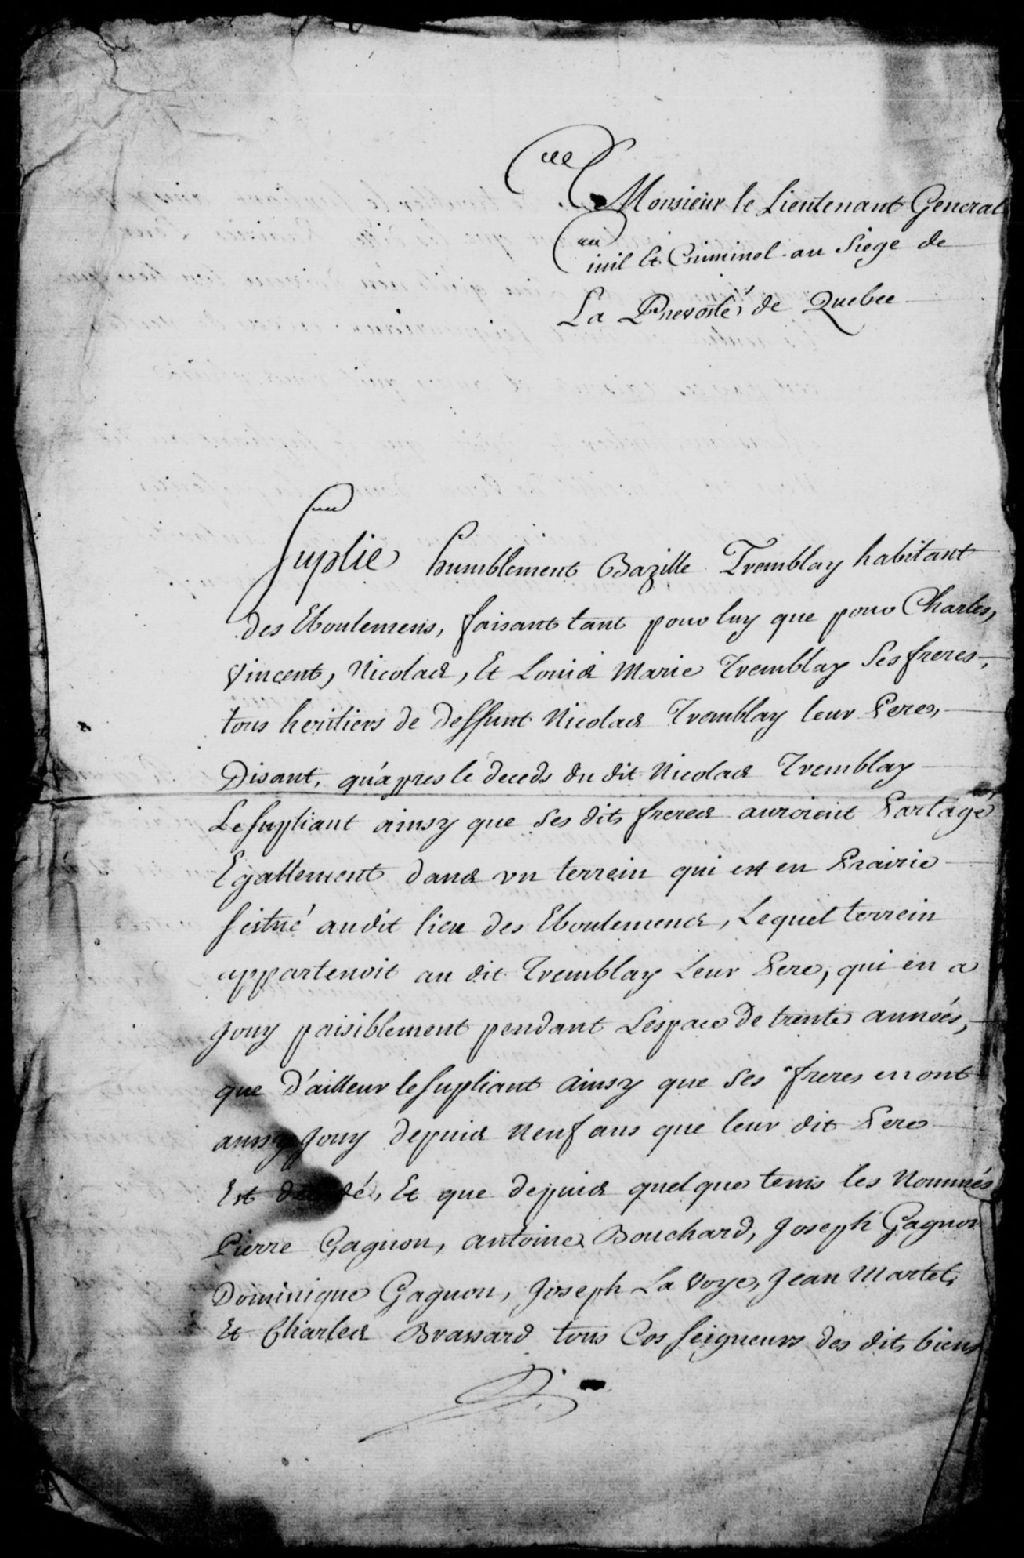 A Monsieur le Lieutenant General
Civil Et Criminel au Siege de
La Prevosté de Quebec
Suplie humblement Bazille Tremblay habitant
des Eboulemens, faisant tant pour luy que pour Charles,
Vincent, Nicolas, Et Louis Marie Tremblay Ses freres,
tous heritiers de deffunt Nicolas Tremblay leur Pere,
Disant, qu'apres le deceds du dit Nicolas Tremblay
Le supliant ainsy que Ses dits freres auroient Partagé
Egallement dans un terrein qui est en Prairie
scitué audit lieu des Eboulemens, Lequel terrein
appartenoit au dit Tremblay Leur Pere, qui en a
jouy paisiblement pendant L'espace de trente années,
que d'ailleur le supliant ainsy que Ses freres en ont
aussy jouy depuis neuf ans que leur dit Pere
Est decedé, Et que depuis quelque tems les Nommés
Pierre Gagnon, antoine Bouchard, Joseph Gagnon
Dominique Gagnon, Joseph La Voye, Jean Martel,
Et Charles Brassard tous Cos seigneurs des dits biens